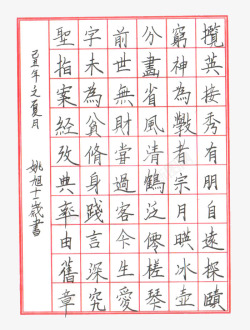 攬英接秀有朋自遠探賾
窮神為斅者宗月暎冰壺
分畫省風清鶴泛澪槎琴
前世無財甞過客仐生愛
字未為貧脩身踐言深究
聖指案經攷典率由舊章
己丑年之夏月 姚旭十一歲書